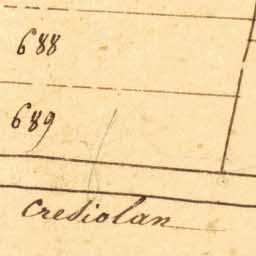 688
689
Crediolan